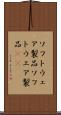 ソフトウェ
ア製品ソフ
トウェア製
品